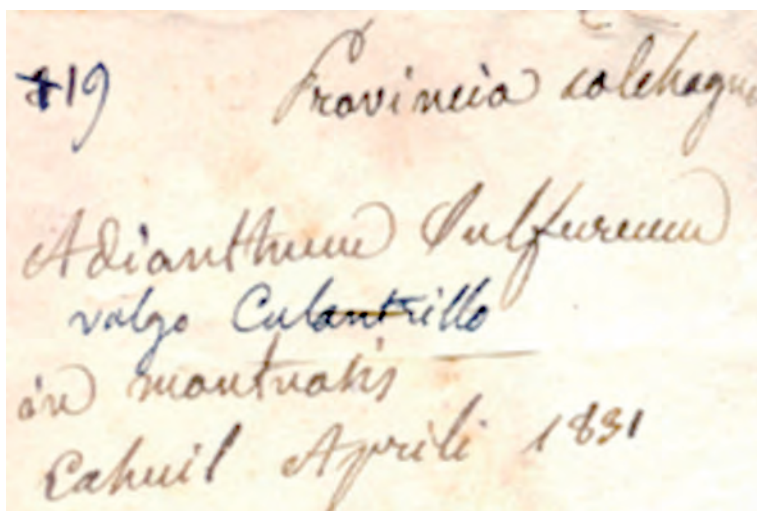 819 Provincia colchagua
Adianthum Sulfureum
vulgo Culantrillo
in montuosis
Cahuil Aprili 1831